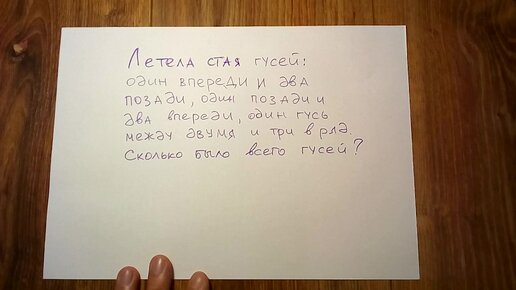 Летела стая гусей:
один впереди и два
позади, один позади и
два впереди, один гусь
между двумя и три в ряд.
Сколько было всего гусей?